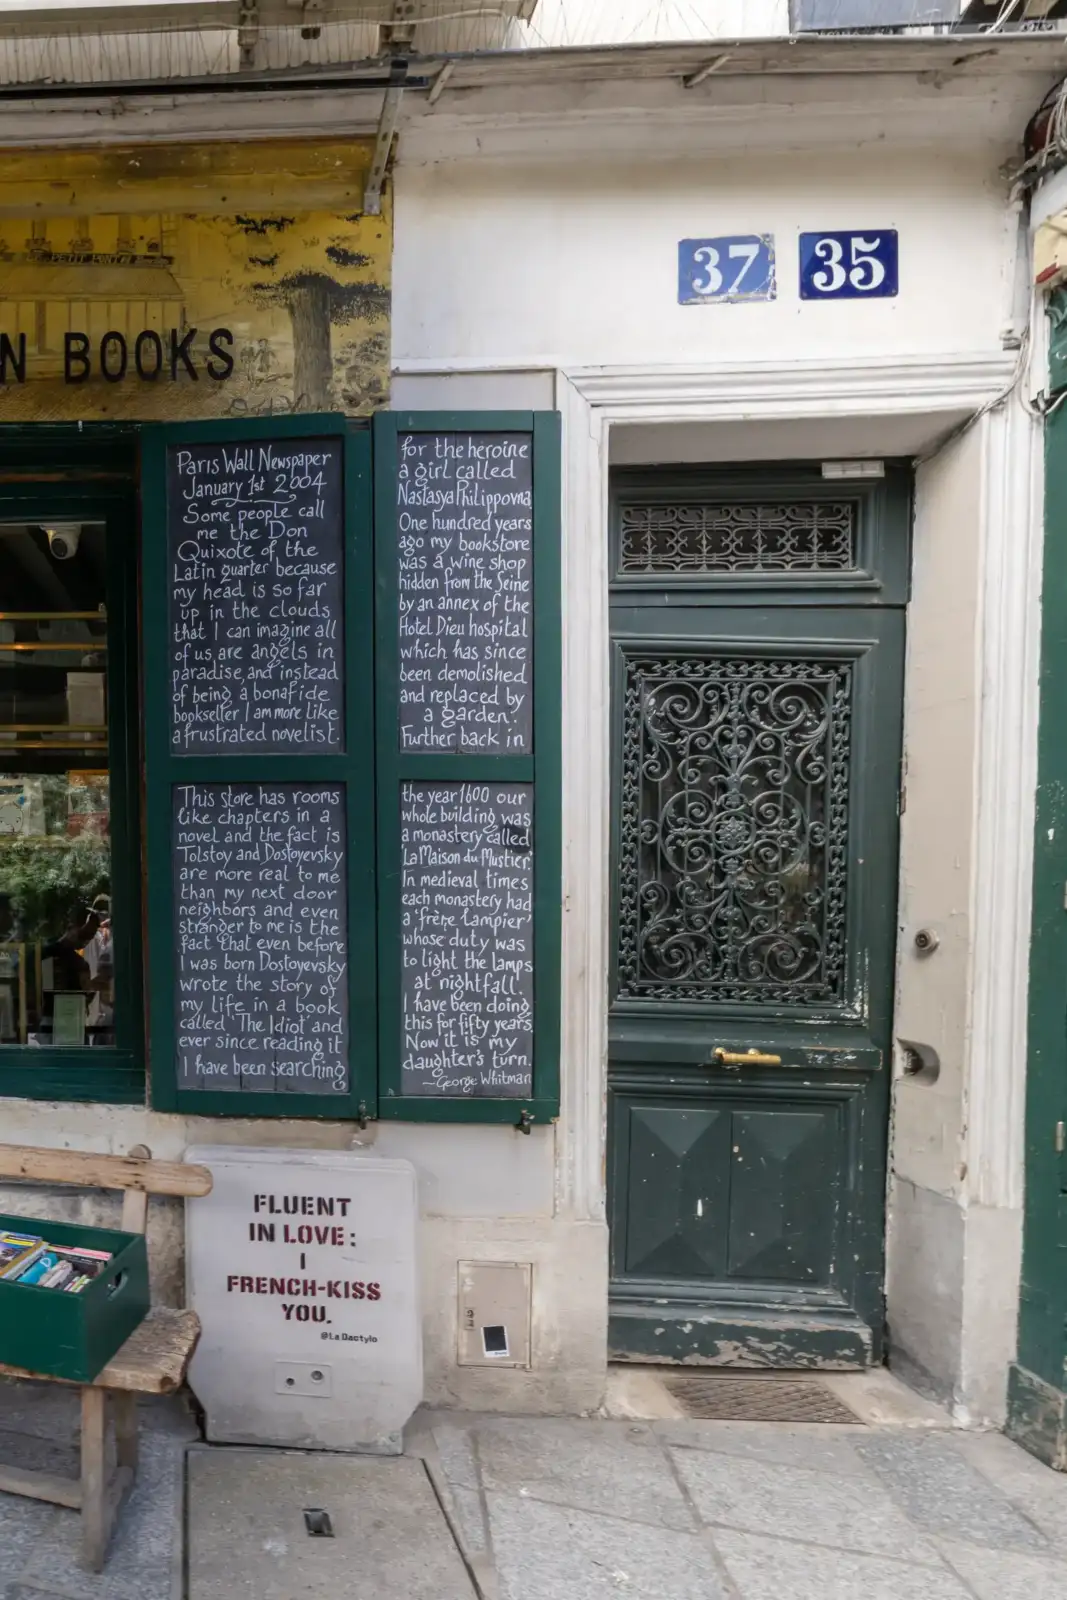 37
35
LE PETIT PONT
N BOOKS
Paris Wall Newspaper
January 1st 2004
Some people call
me the Don
Quixote of the
Latin quarter because
my head is so far
up in the clouds
that I can imagine all
of us are angels in
paradise, and instead
of being a bonafide
bookseller I am more like
a frustrated novelist.
This store has rooms
like chapters in a
novel and the fact is
Tolstoy and Dostoyevsky
are more real to me
than my next door
neighbors and even
stranger to me is the
fact that even before
I was born Dostoyevsky
wrote the story of
my life in a book
called 'The Idiot' and
ever since reading it
I have been searching
for the heroine
a girl called
Nastasya Philippovna
One hundred years
ago my bookstore
was a wine shop
hidden from the Seine
by an annex of the
Hotel Dieu hospital
which has since
been demolished
and replaced by
a garden.
Further back in
the year 1600 our
whole building was
a monastery called
'La Maison du Mustier.'
In medieval times
each monastery had
a 'frère lampier'
whose duty was
to light the lamps
at nightfall.
I have been doing
this for fifty years.
Now it is my
daughter's turn.
~George Whitman
FLUENT
IN LOVE:
I
FRENCH-KISS
YOU.
@La Dactylo